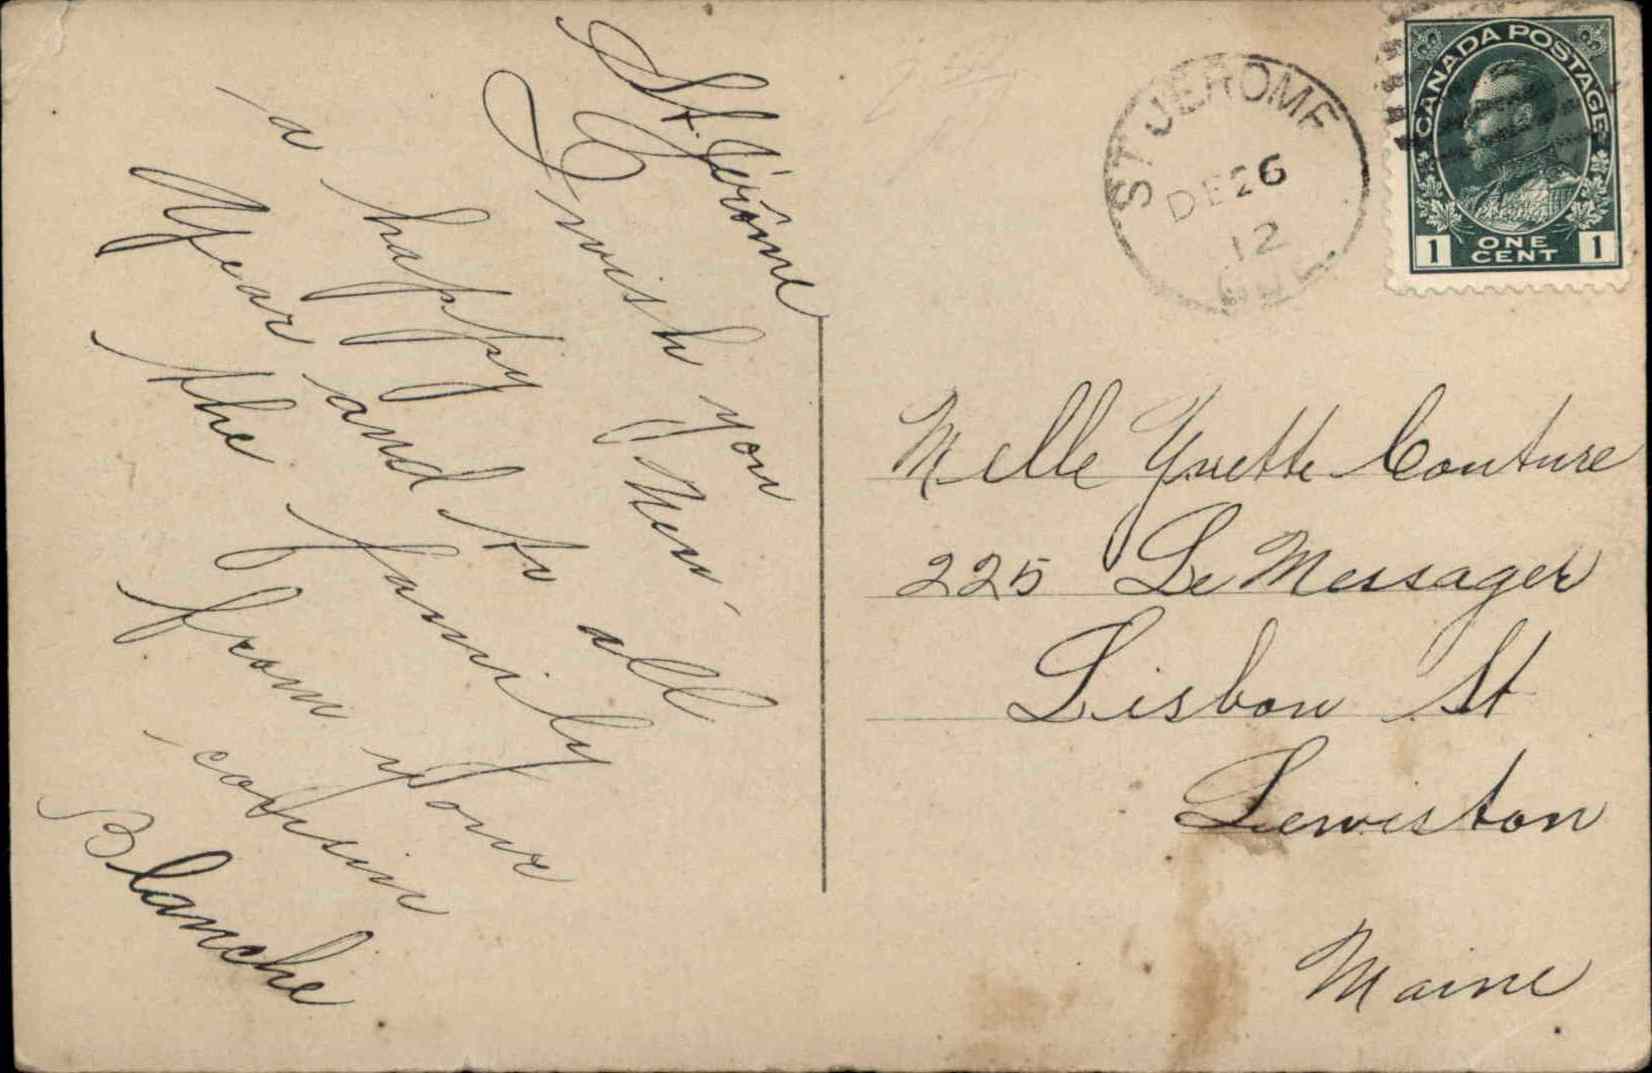 St. Jérôme
I wish you
a happy New-
Year and to all
the family
from your
cousin
Blanche
ST JEROME
DE 26
12
CANADA POSTAGE
1 ONE CENT 1
Melle Yvette Couture
225 Le Messager
Lisbon St
Lewiston
Maine